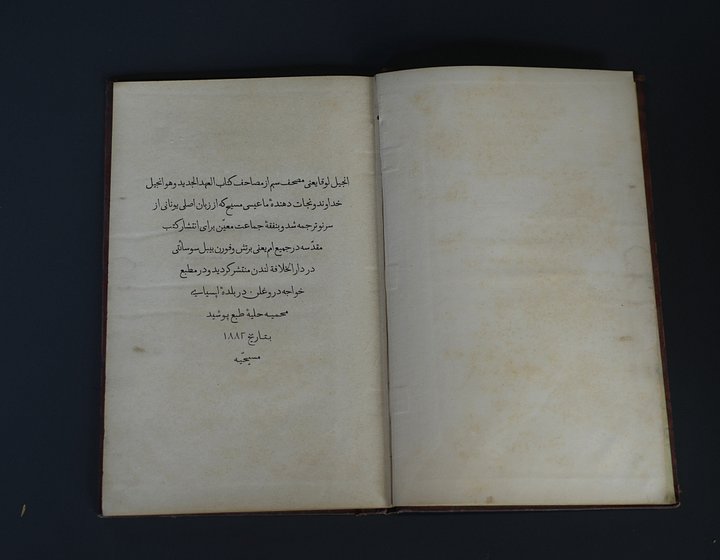 انجیل لوقا یعنی مصحف سیم از مصاحف کتاب العهد الجدید و هو انجیل
خداوند و نجات دهندهٔ ما عیسی مسیح که از زبان اصلی یونانی از
سر نو ترجمه شد و بنفقهٔ جماعت معیّن برای انتشار کتب
مقدّسه در جمیع امم یعنی برتش و فورن بیبل سوسائتی
در دار الخلافة لندن منتشر کردید و در مطبع
خواجه دروغلن در بلدهٔ لیپسیا
محمیه حلیهٔ طبع پوشید
بتاریخ ۱۸۸۲
مسیحیّه